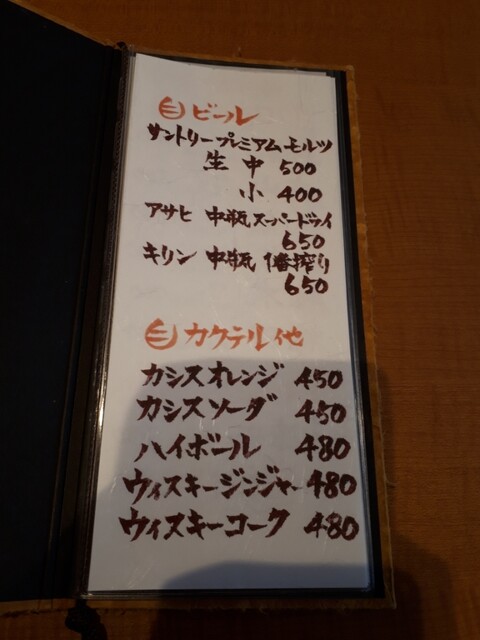 ビール
サントリープレミアムモルツ
生 中 500
小 400
アサヒ 中瓶 スーパードライ
650
キリン 中瓶 1番搾り
650
カクテル他
カシスオレンジ 450
カシスソーダ 450
ハイボール 480
ウィスキージンジャー 480
ウィスキーコーク 480